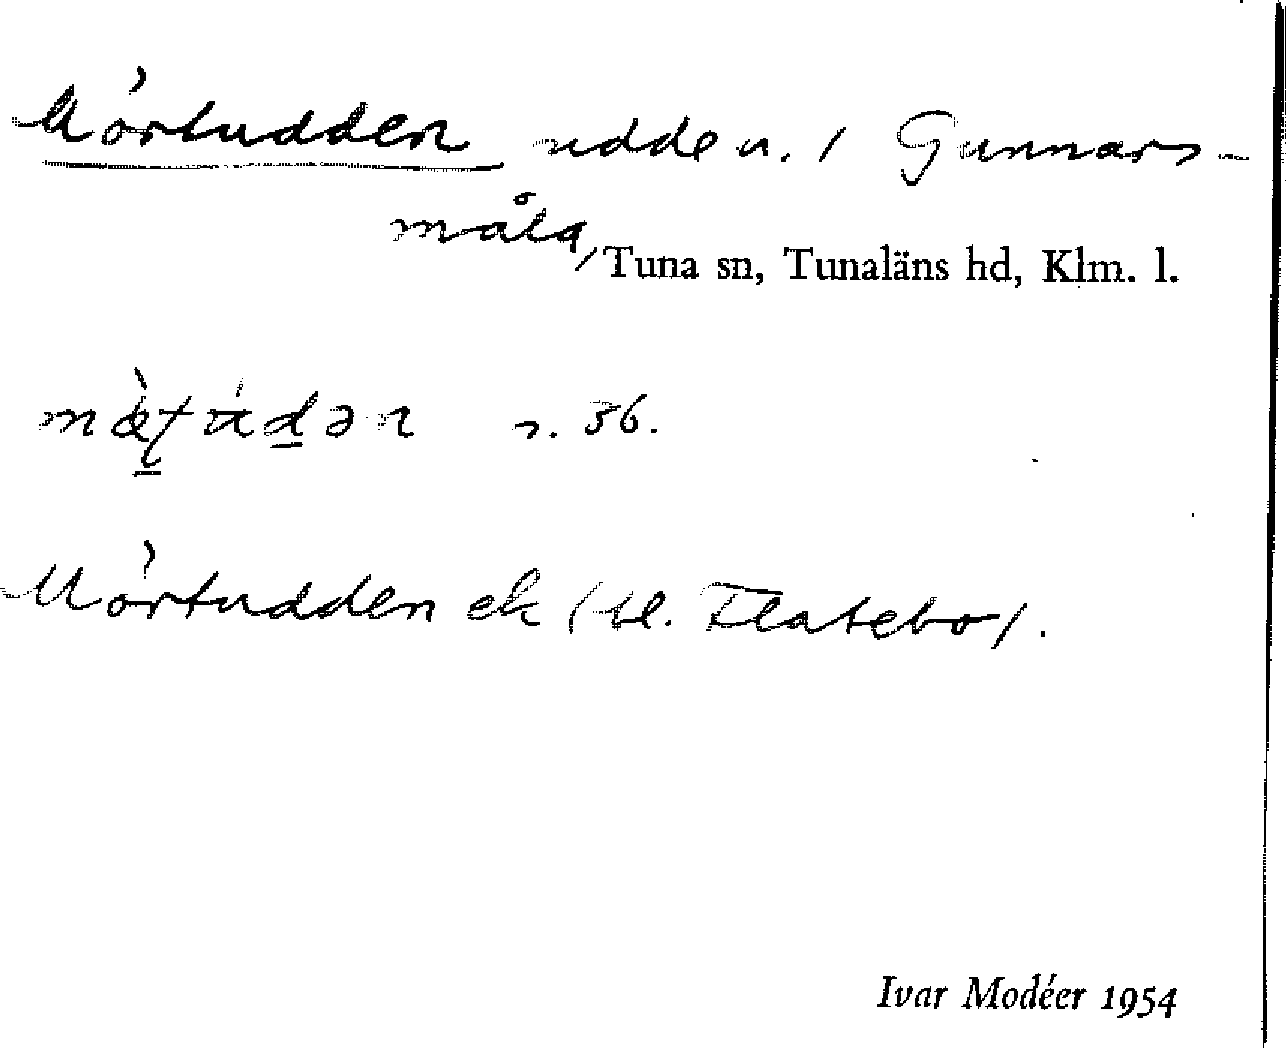 Mörtudden udde n. / Gunnars-
måla, Tuna sn, Tunaläns hd, Klm. l.
s. 36.
Mörtudden ek (bl. Flatebo).
Ivar Modéer 1954